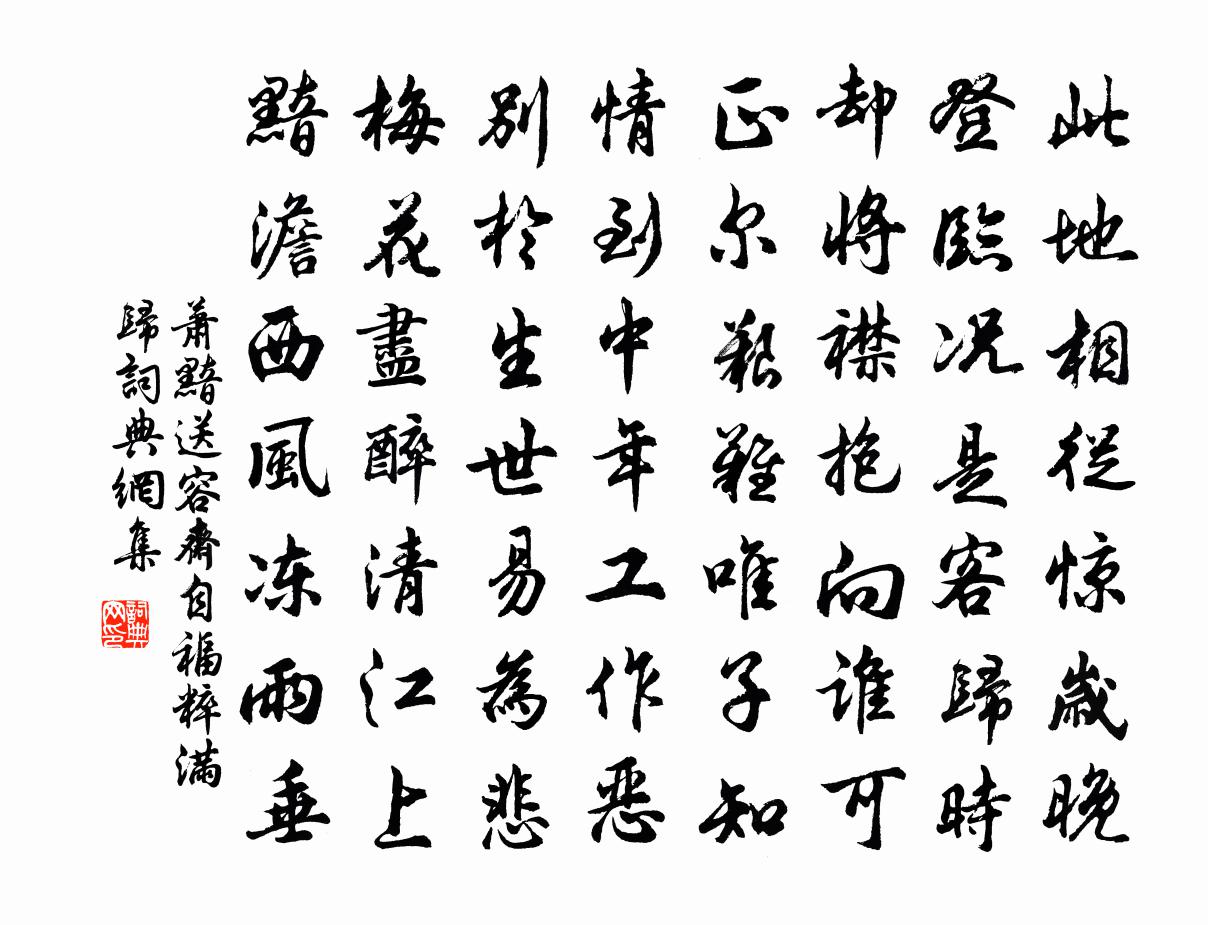 此地相從惊歲晚
登臨况是客歸時
却將襟抱向誰可
正尔艱難唯子知
情到中年工作惡
別於生世易為悲
梅花盡醉清江上
黯澹西風冻雨垂
蕭黯送容齋自福粹滿
歸詞典網集
詞典网印